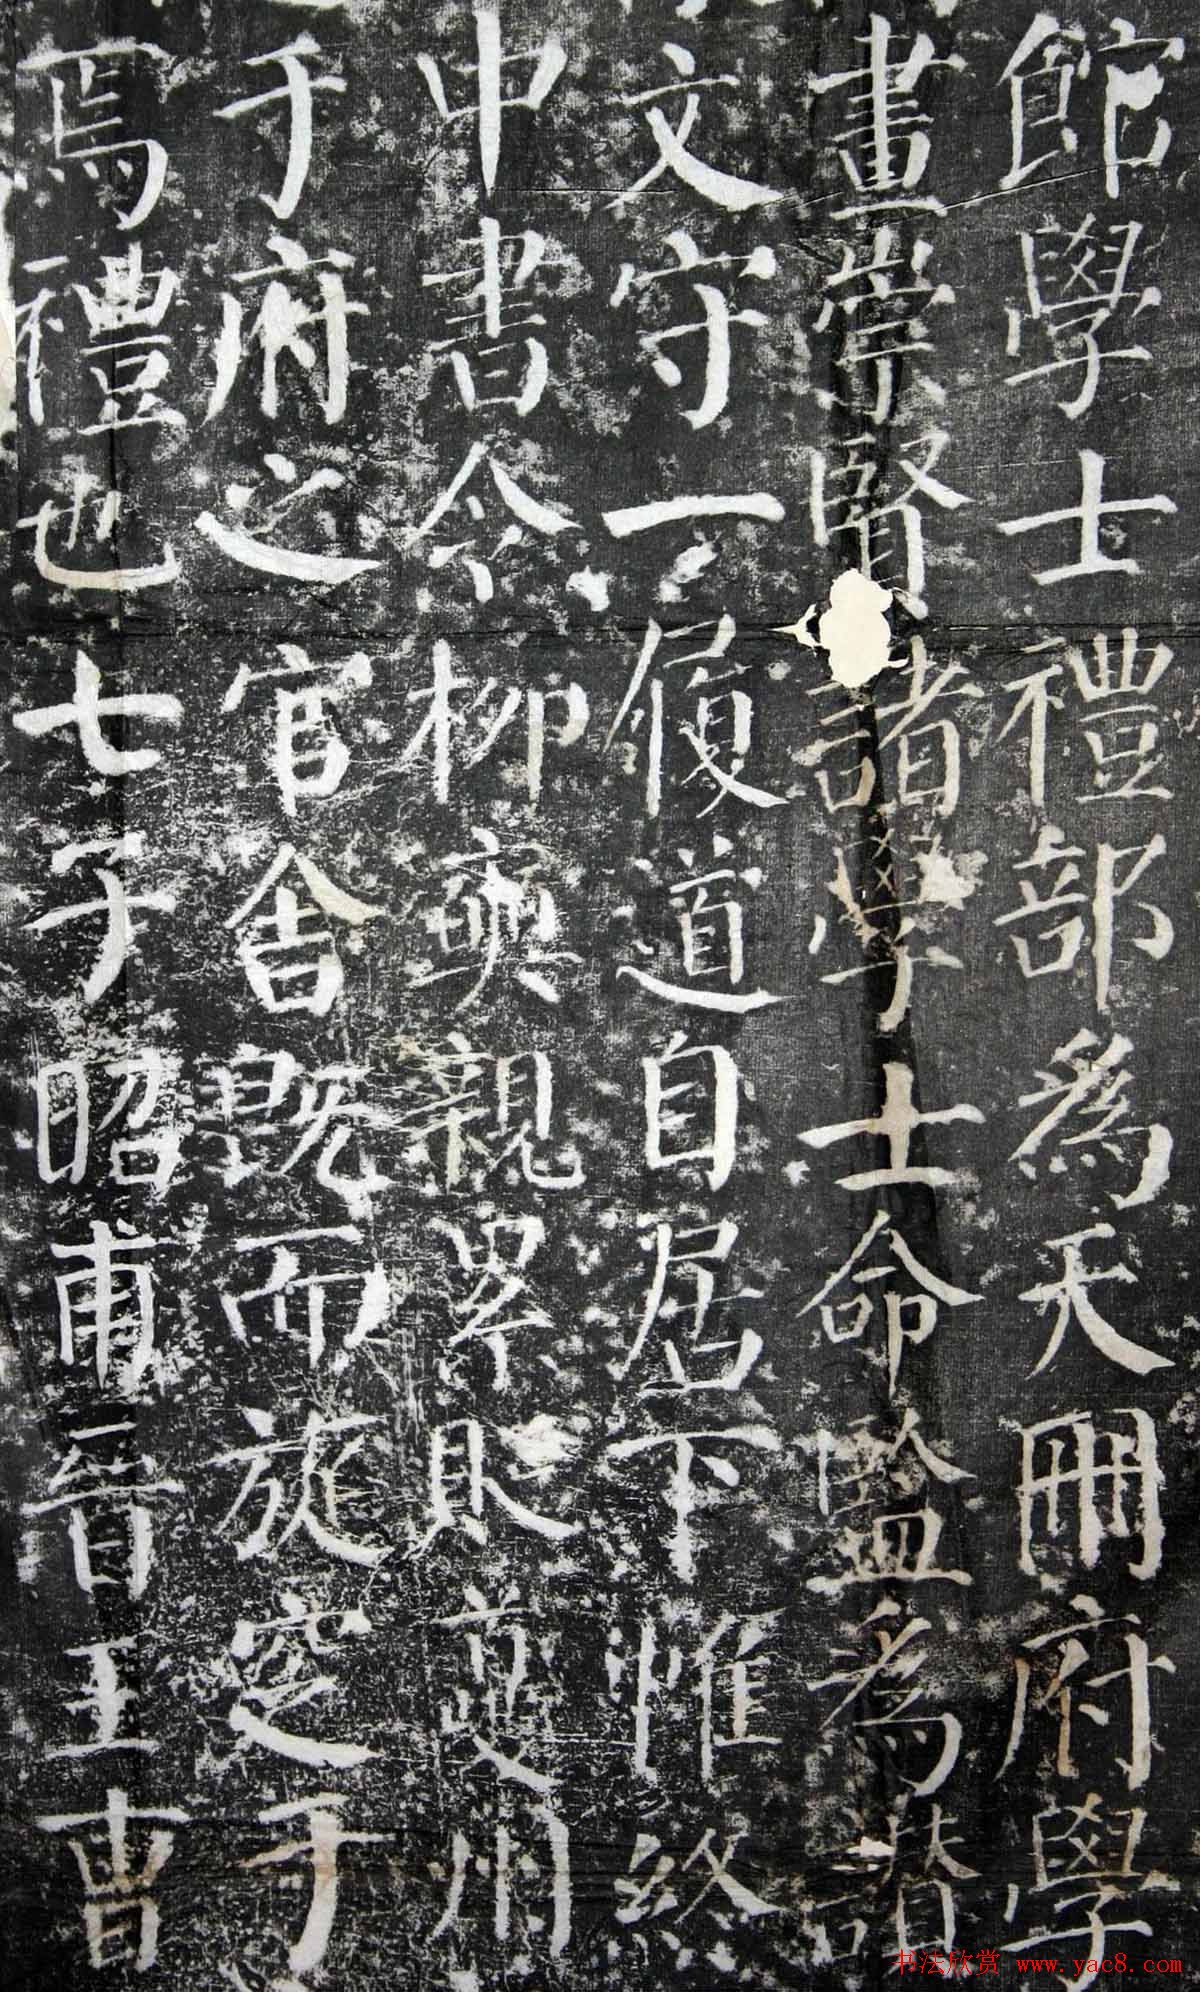 館學士禮部為天冊府學
畫崇賢諸學士命監為讚
文守一履道自居下帷終
中書令柳奭親累貶夔州
于府之官舍既而旋窆于
焉禮也七子昭甫晉王曹
书法欣赏 www.yac8.com